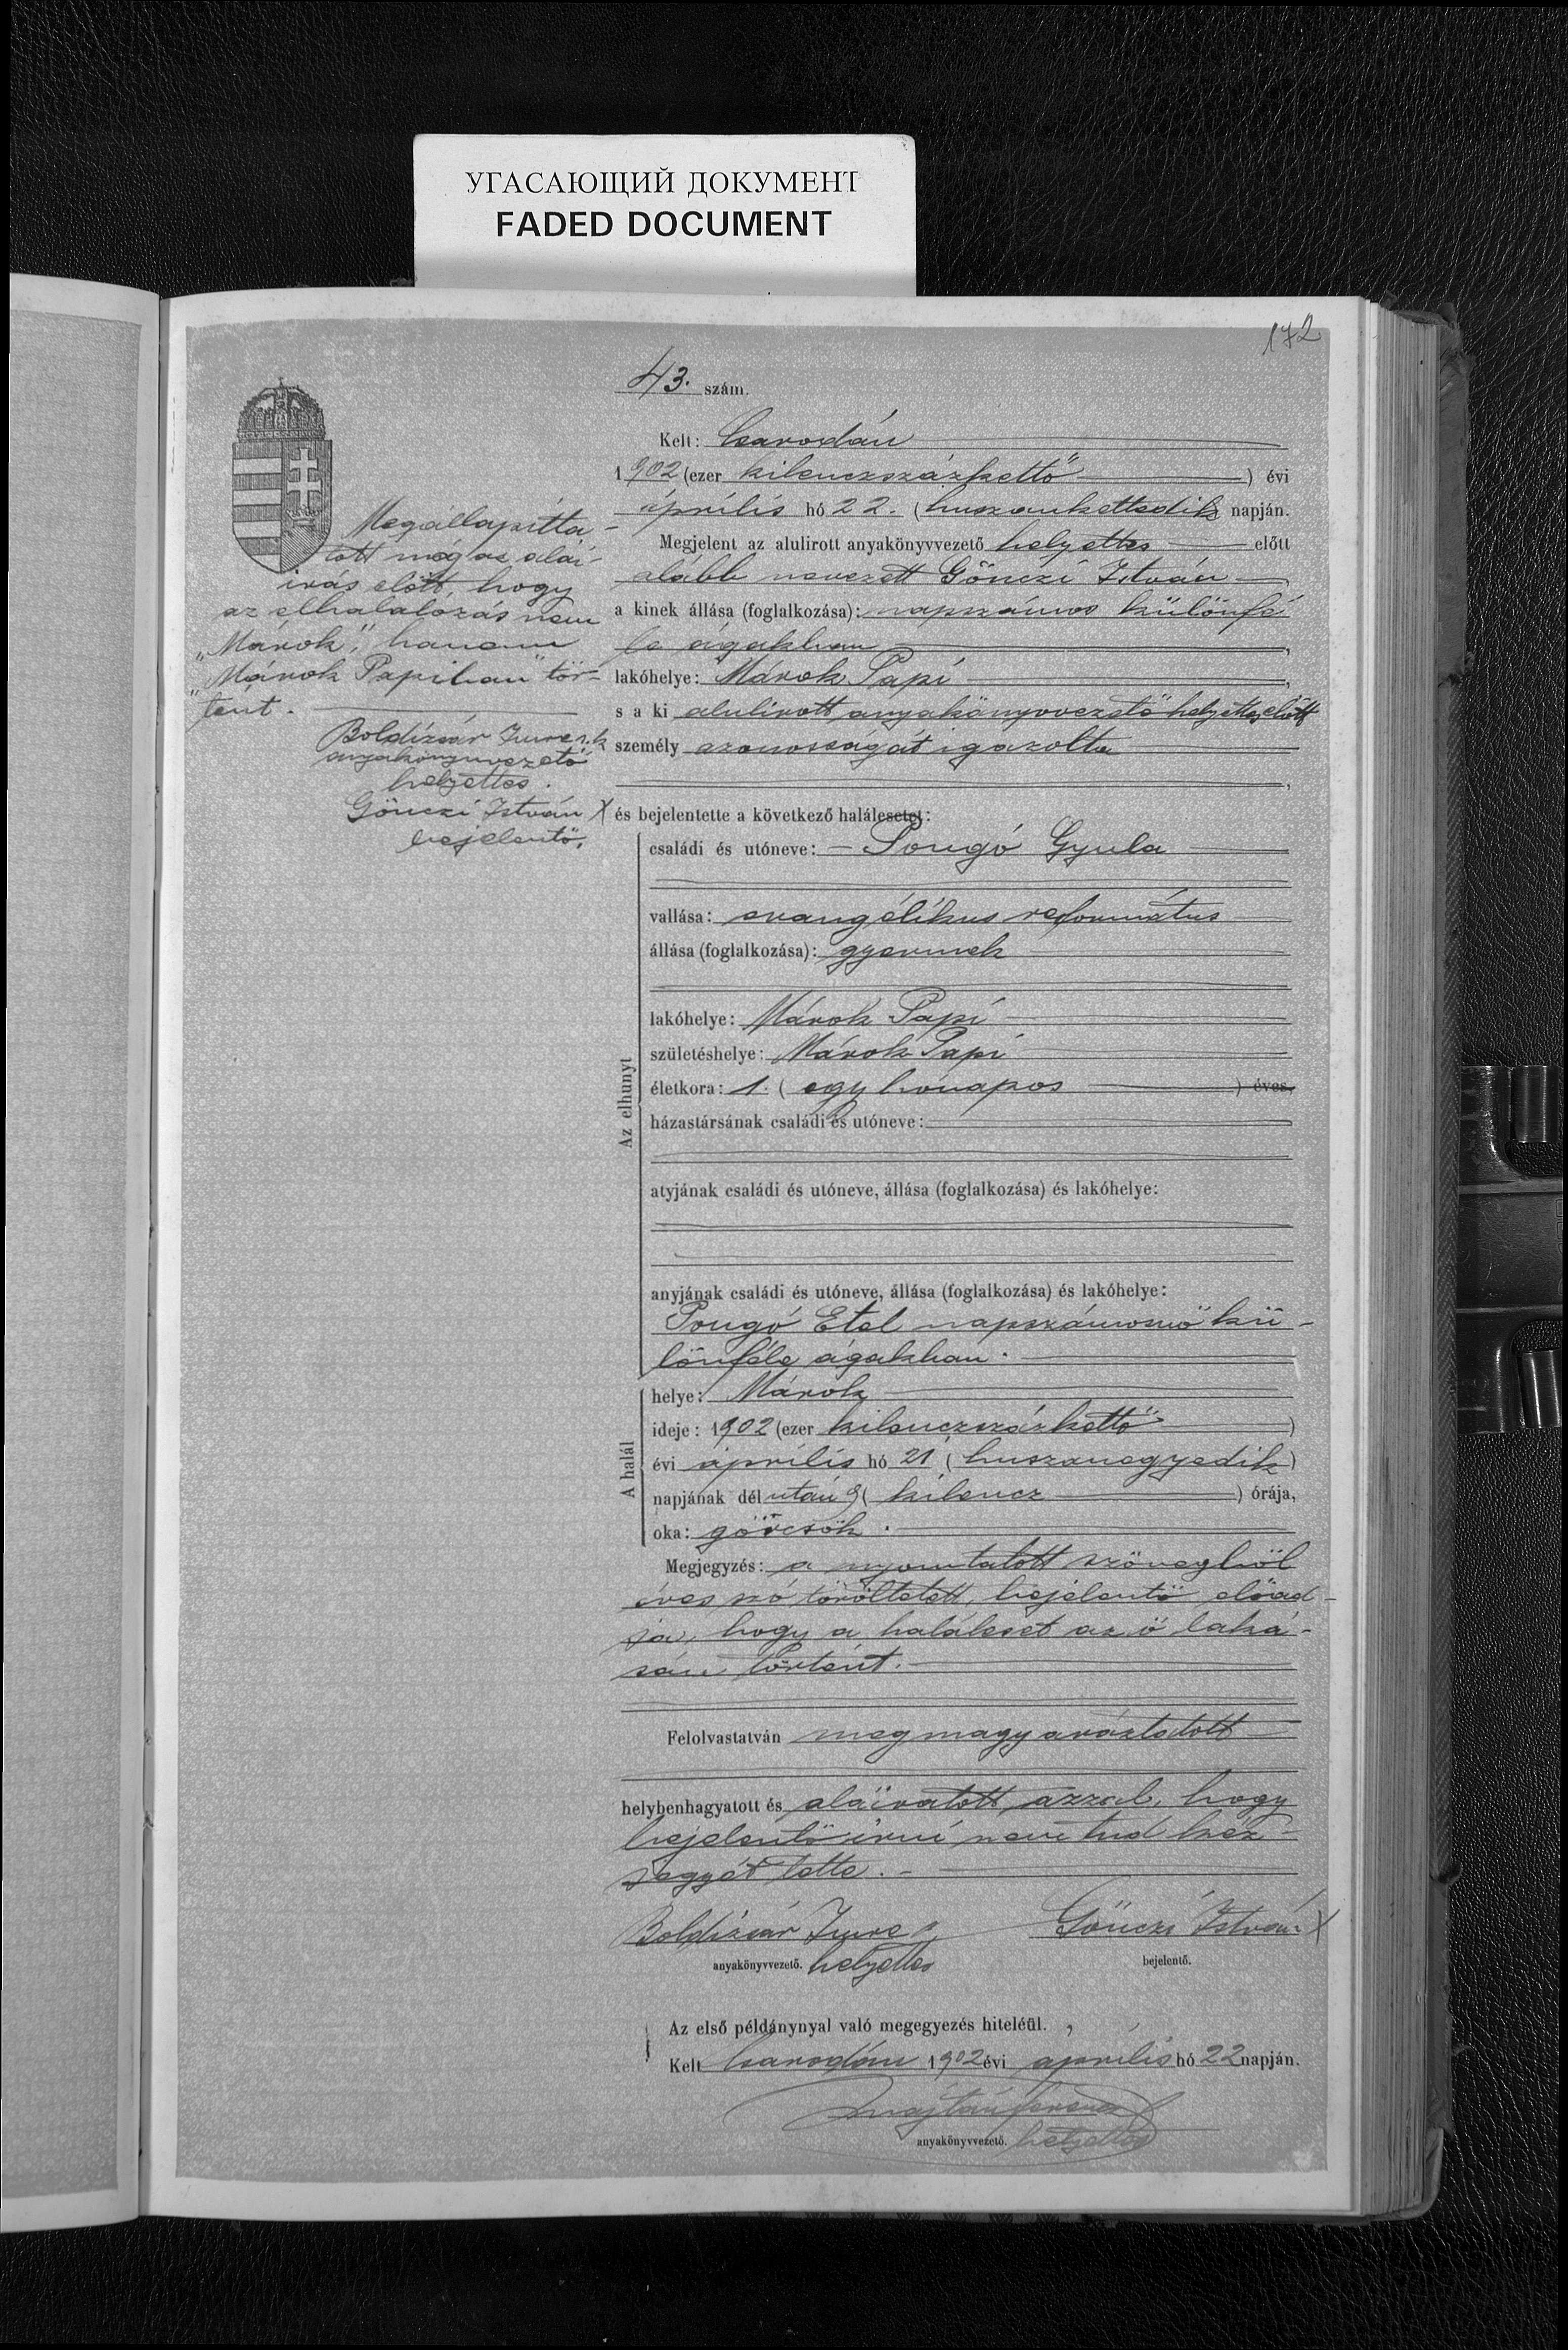 УГАСАЮЩИЙ ДОКУМЕНТ
FADED DOCUMENT
172
43. szám.
Kelt: Csarodán
1902 (ezer kilenczszázkettő) évi
április hó 22. (huszonkettedik) napján.
Megjelent az alulirott anyakönyvvezető helyettes előtt
alább nevezett Gönczi István,
a kinek állása (foglalkozása): napszámos különfé
le ágakban,
lakóhelye: Márok Papi,
s a ki alulirott anyakönyvvezető helyettes előtt
személy azonosságát igazolta
,
és bejelentette a következő halálesetet:
Az elhunyt
családi és utóneve: – Pongó Gyula
vallása: evangélikus református
állása (foglalkozása): gyermek
lakóhelye: Márok Papi
születéshelye: Márok Papi
életkora: 1. (egy hónapos) éves,
házastársának családi és utóneve:
atyjának családi és utóneve, állása (foglalkozása) és lakóhelye:
anyjának családi és utóneve, állása (foglalkozása) és lakóhelye:
Pongó Etel napszámosnő kü-
lönféle ágakban.
A halál
helye: Márok
ideje: 1902 (ezer kilenczszázkettő)
évi április hó 21 (huszonegyedik)
napjának délután 9 (kilencz) órája,
oka: görcsök.
Megjegyzés: a nyomtatott szövegből
éves szó töröltetett, bejelentő előad-
ja, hogy a haláleset az ő laká-
sán történt.
Felolvastatván megmagyaráztatott
helybenhagyatott és aláiratott azzal, hogy
bejelentő irni nem tud kéz
jegyét tette. –
Boldizsár Imre
Gönczi István X
anyakönyvvezető. helyettes
bejelentő.
Az első példánynyal való megegyezés hiteléül.
Kelt Csarodán 1902 évi április hó 22 napján.
Majtán Ferencz
anyakönyvvezető. helyettes
Megállapítta-
tott még az alá-
irás előtt, hogy
az elhalálozás nem
„Márok", hanem
„Márok Papiban" tör-
tént.
Boldizsár Imre
anyakönyvvezető
helyettes.
Gönczi István X
bejelentő.